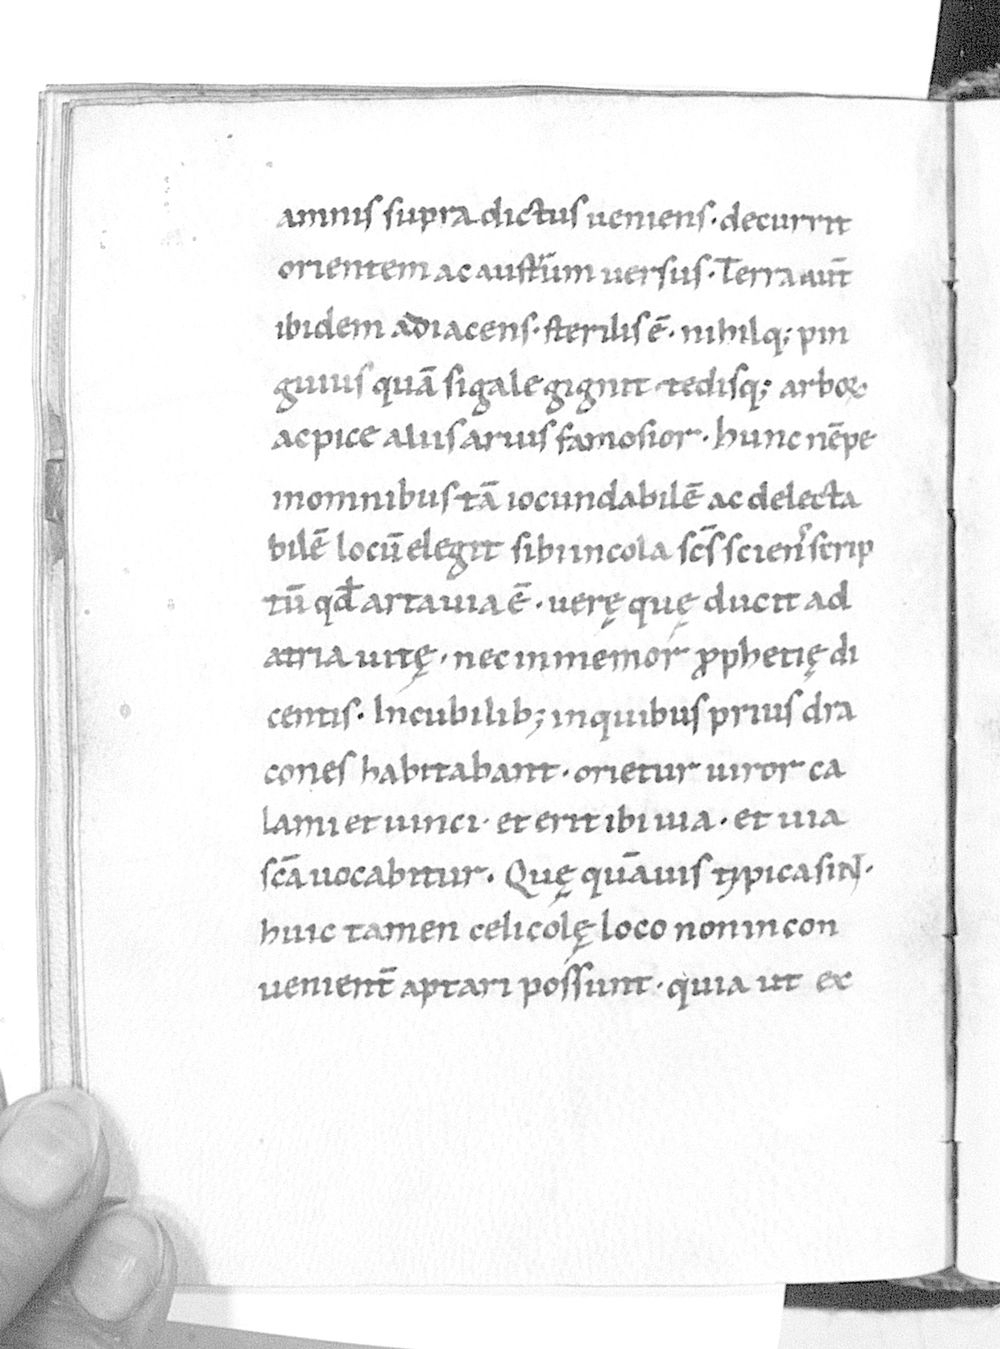 amnis supra dictus ueniens · decurrit
orientem ac austrum uersus · Terra aut̄
ibidem adiacens · sterilis ē · nihilq; pin
guius quā sigale gignit · tedisq; arboꝝ
ac pice aliis aruis famosior · hunc nēpe
in omnibus tā iocundabilē ac delecta
bilē locū elegit sibi incola scs̄ sciens scrip
tū qd̄ arta uia ē · uerę quę ducit ad
atria uitę · nec inmemor ꝓphetię di
centis · In cubilib; in quibus prius dra
cones habitabant · orietur uiror ca
lami et iunci · et erit ibi uia · et uia
scā uocabitur · Quę quāuis typica sint ·
huic tamen celicolę loco non incon
uenient̄ aptari possunt · quia ut ex